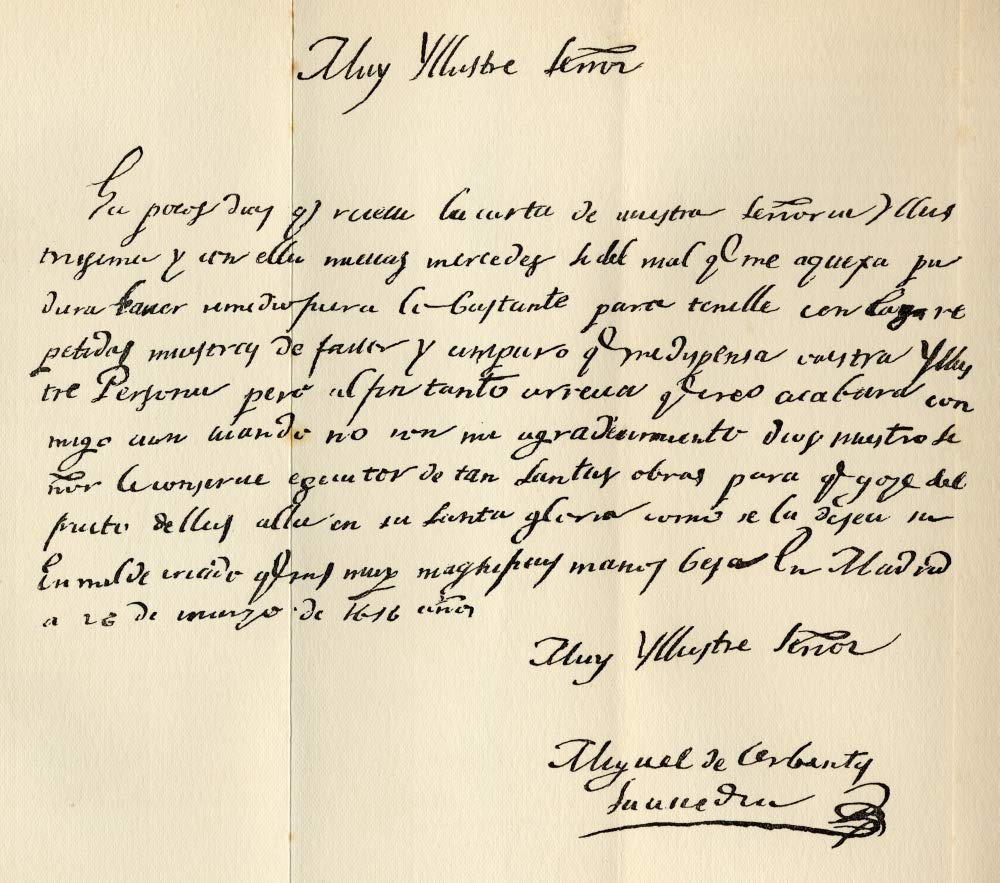 Muy Yllustre Señor
Ha pocos dias q̃ receui la carta de vuestra Señoria Yllus
trisima y con ella nueuas mercedes si del mal q̃ me aquexa pu
diera hauer remedio fuera lo bastante para tenelle con las re
petidas muestras de fauor y amparo q̃ me dispensa vuestra Yllus
tre Persona pero al fin tanto arrecia q̃ creo acabara con
migo aun cuando no con mi agradecimiento dios nuestro se
ñor le conserue egecutor de tan santas obras para q̃ goze del
fruto dellas alla en su santa gloria como se la desea su
humilde criado q̃ sus muy magnificas manos besa En Madrid
a 26 de marzo de 1616 años
Muy Yllustre Señor
Miguel de Cerbantes
Saauedra